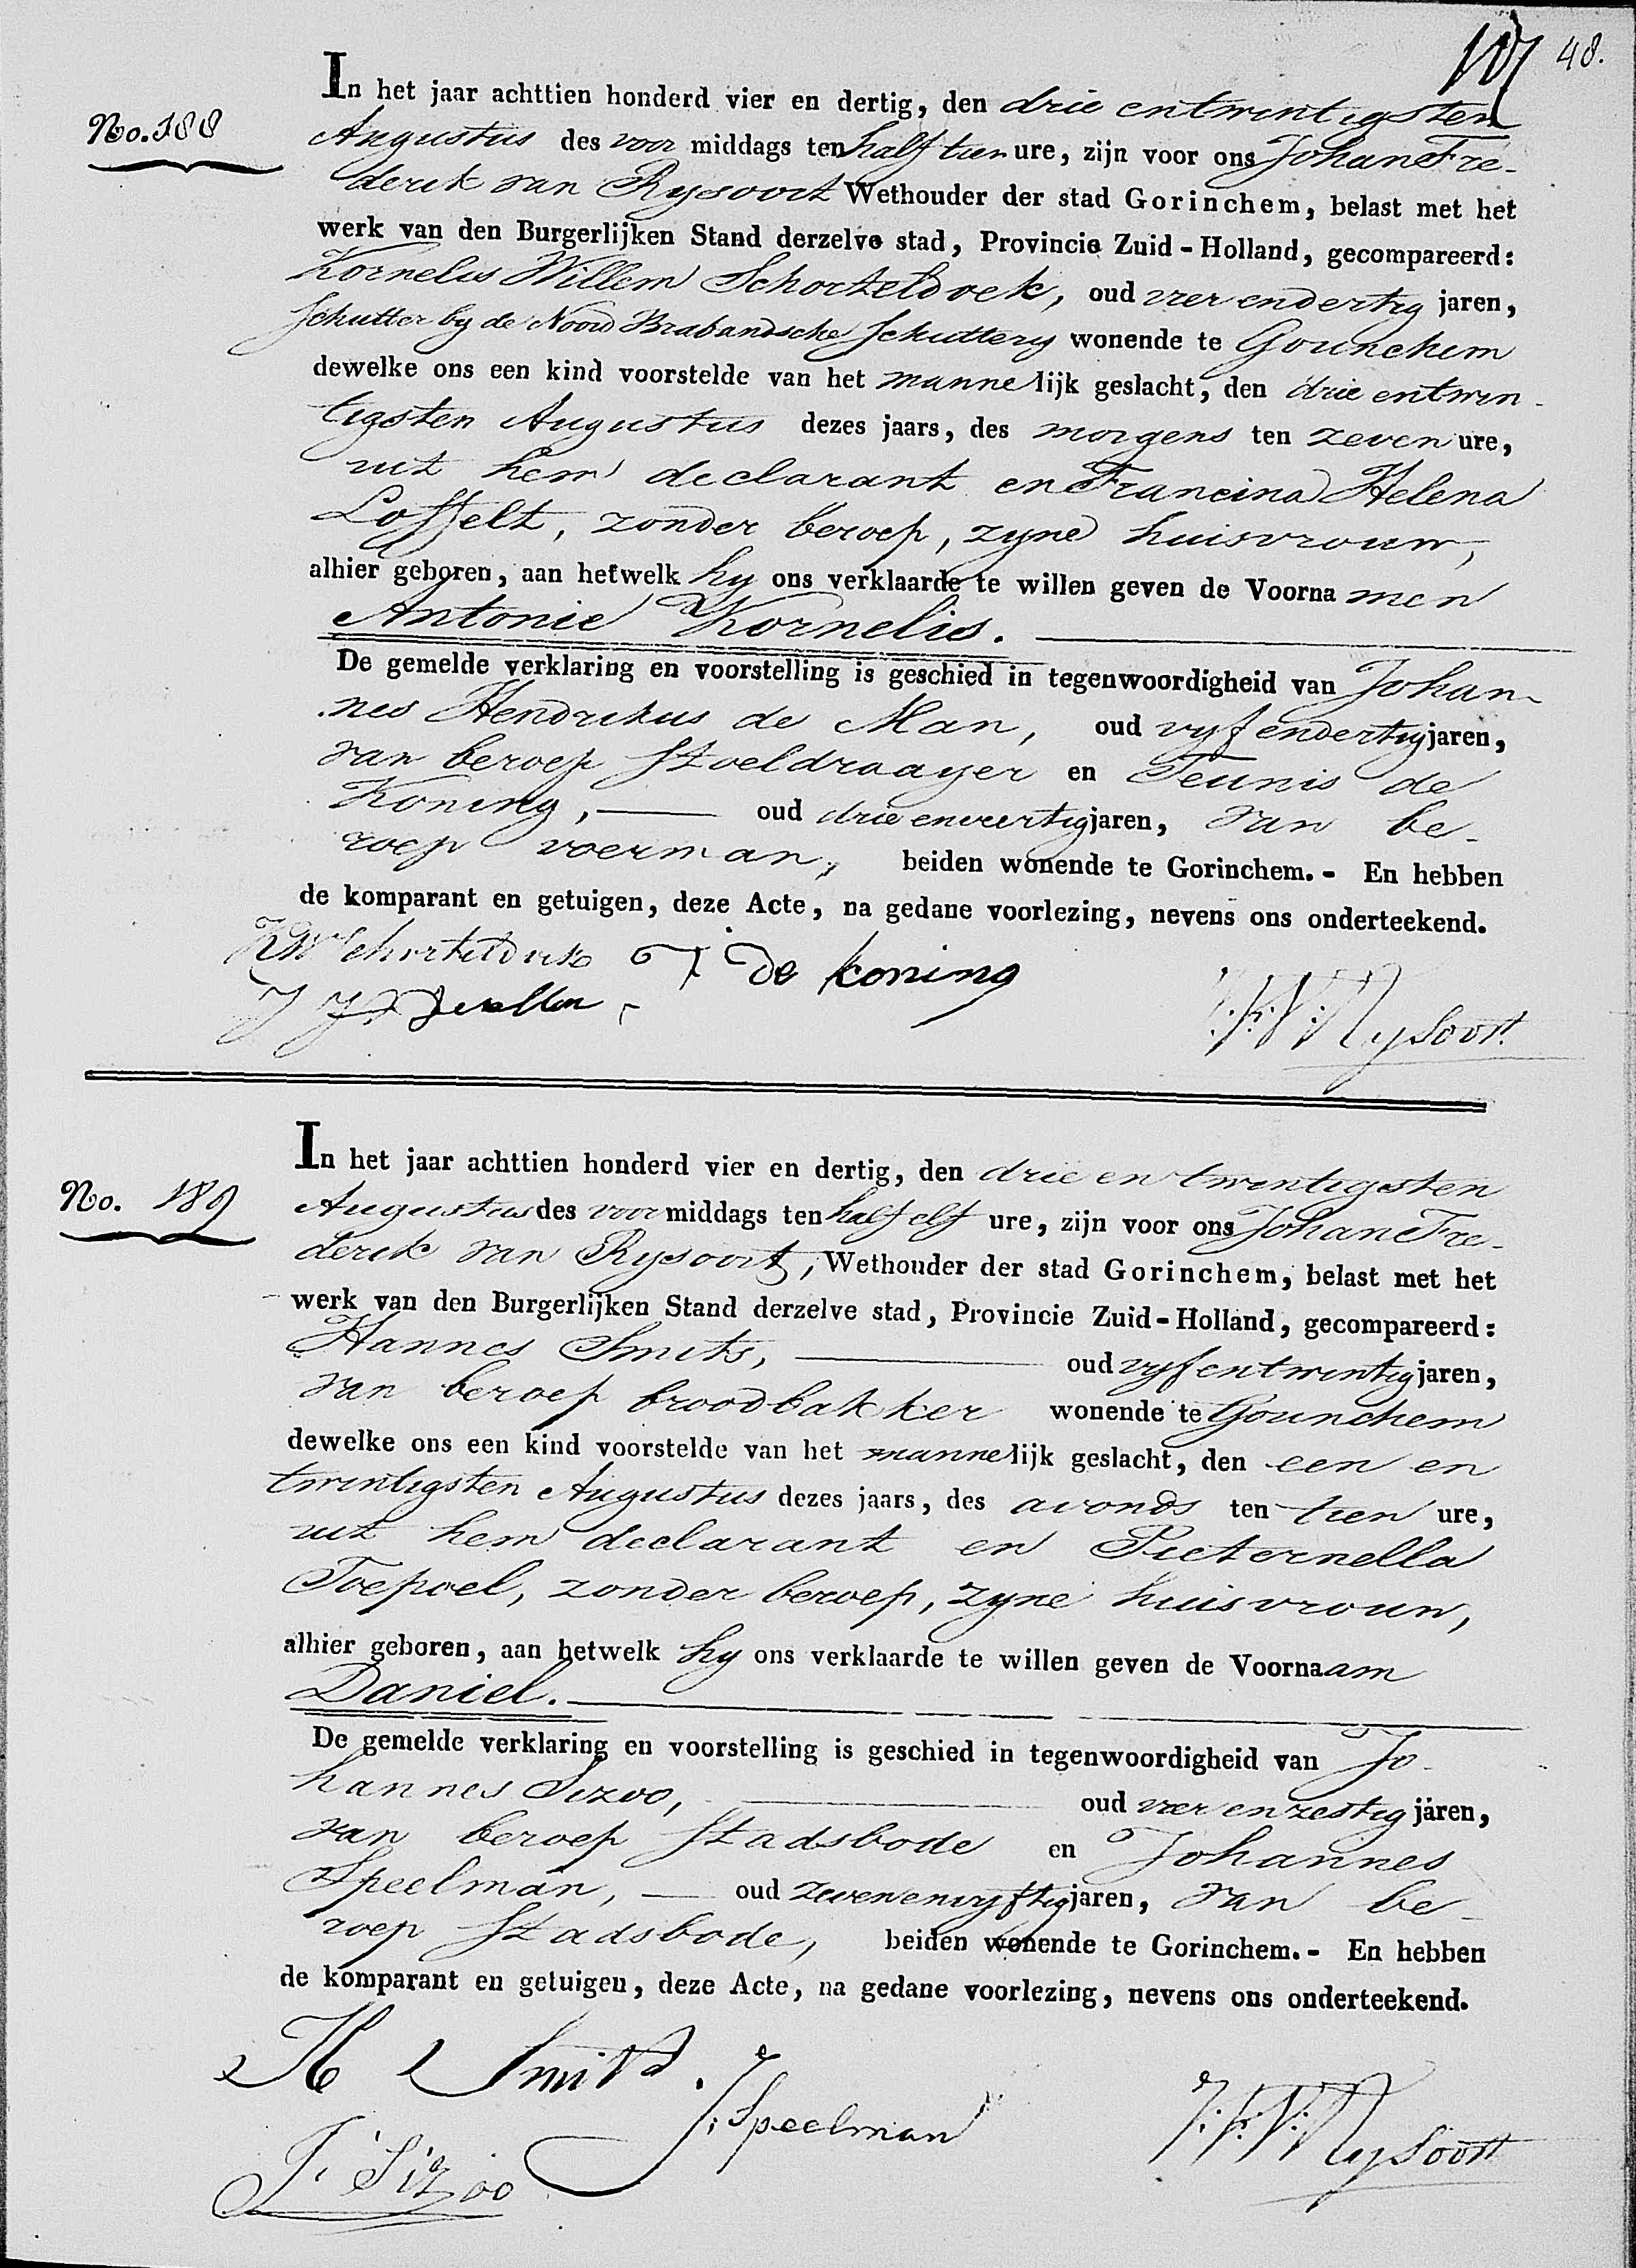 48.
No. 188
In het jaar achttien honderd vier en dertig, den drie entwintigsten
Augustus des voor middags ten half tien ure, zijn voor ons Johan Fre-
derik van Rysoort Wethouder der stad Gorinchem, belast met het
werk van den Burgerlijken Stand derzelve stad, Provincie Zuid-Holland, gecompareerd:
Kornelis Willem Schorteldoek, oud vier endertig jaren,
Schutter by de Noord Brabandsche Schuttery wonende te Gorinchem
dewelke ons een kind voorstelde van het mannelijk geslacht, den drie entwin-
tigsten Augustus dezes jaars, des morgens ten zeven ure,
uit hem declarant en Francina Helena
Loffelt, zonder beroep, zyne huisvrouw,
alhier geboren, aan hetwelk hy ons verklaarde te willen geven de Voornamen
Antonie Kornelis.
De gemelde verklaring en voorstelling is geschied in tegenwoordigheid van Johan-
nes Hendrikus de Man, oud vyf endertig jaren,
van beroep Stoeldraayer en Teunis de
Koning, oud drie enveertig jaren, van be-
roep voerman, beiden wonende te Gorinchem. - En hebben
de komparant en getuigen, deze Acte, na gedane voorlezing, nevens ons onderteekend.
KW Schorteldoek T de koning
J:F:V:Rysoort
No. 189
In het jaar achttien honderd vier en dertig, den drie en twintigsten
Augustus des voor middags ten half elf ure, zijn voor ons Johan Fre-
derik van Rysoort, Wethouder der stad Gorinchem, belast met het
werk van den Burgerlijken Stand derzelve stad, Provincie Zuid-Holland, gecompareerd:
Hannes Smits, oud vyf entwintig jaren,
van beroep broodbakker wonende te Gorinchem
dewelke ons een kind voorstelde van het mannelijk geslacht, den een en
twintigsten Augustus dezes jaars, des avonds ten tien ure,
uit hem declarant en Pieternella
Toepoel, zonder beroep, zyne huisvrouw,
alhier geboren, aan hetwelk hy ons verklaarde te willen geven de Voornaam
Daniel.
De gemelde verklaring en voorstelling is geschied in tegenwoordigheid van Jo-
hannes Sizoo, oud vier enzestig jaren,
van beroep Stadsbode en Johannes
Speelman, oud zeven envyftig jaren, van be-
roep Stadsbode, beiden wonende te Gorinchem. - En hebben
de komparant en getuigen, deze Acte, na gedane voorlezing, nevens ons onderteekend.
H Smits.
J: Speelman
J:F:V:Rysoort
J: Sizoo